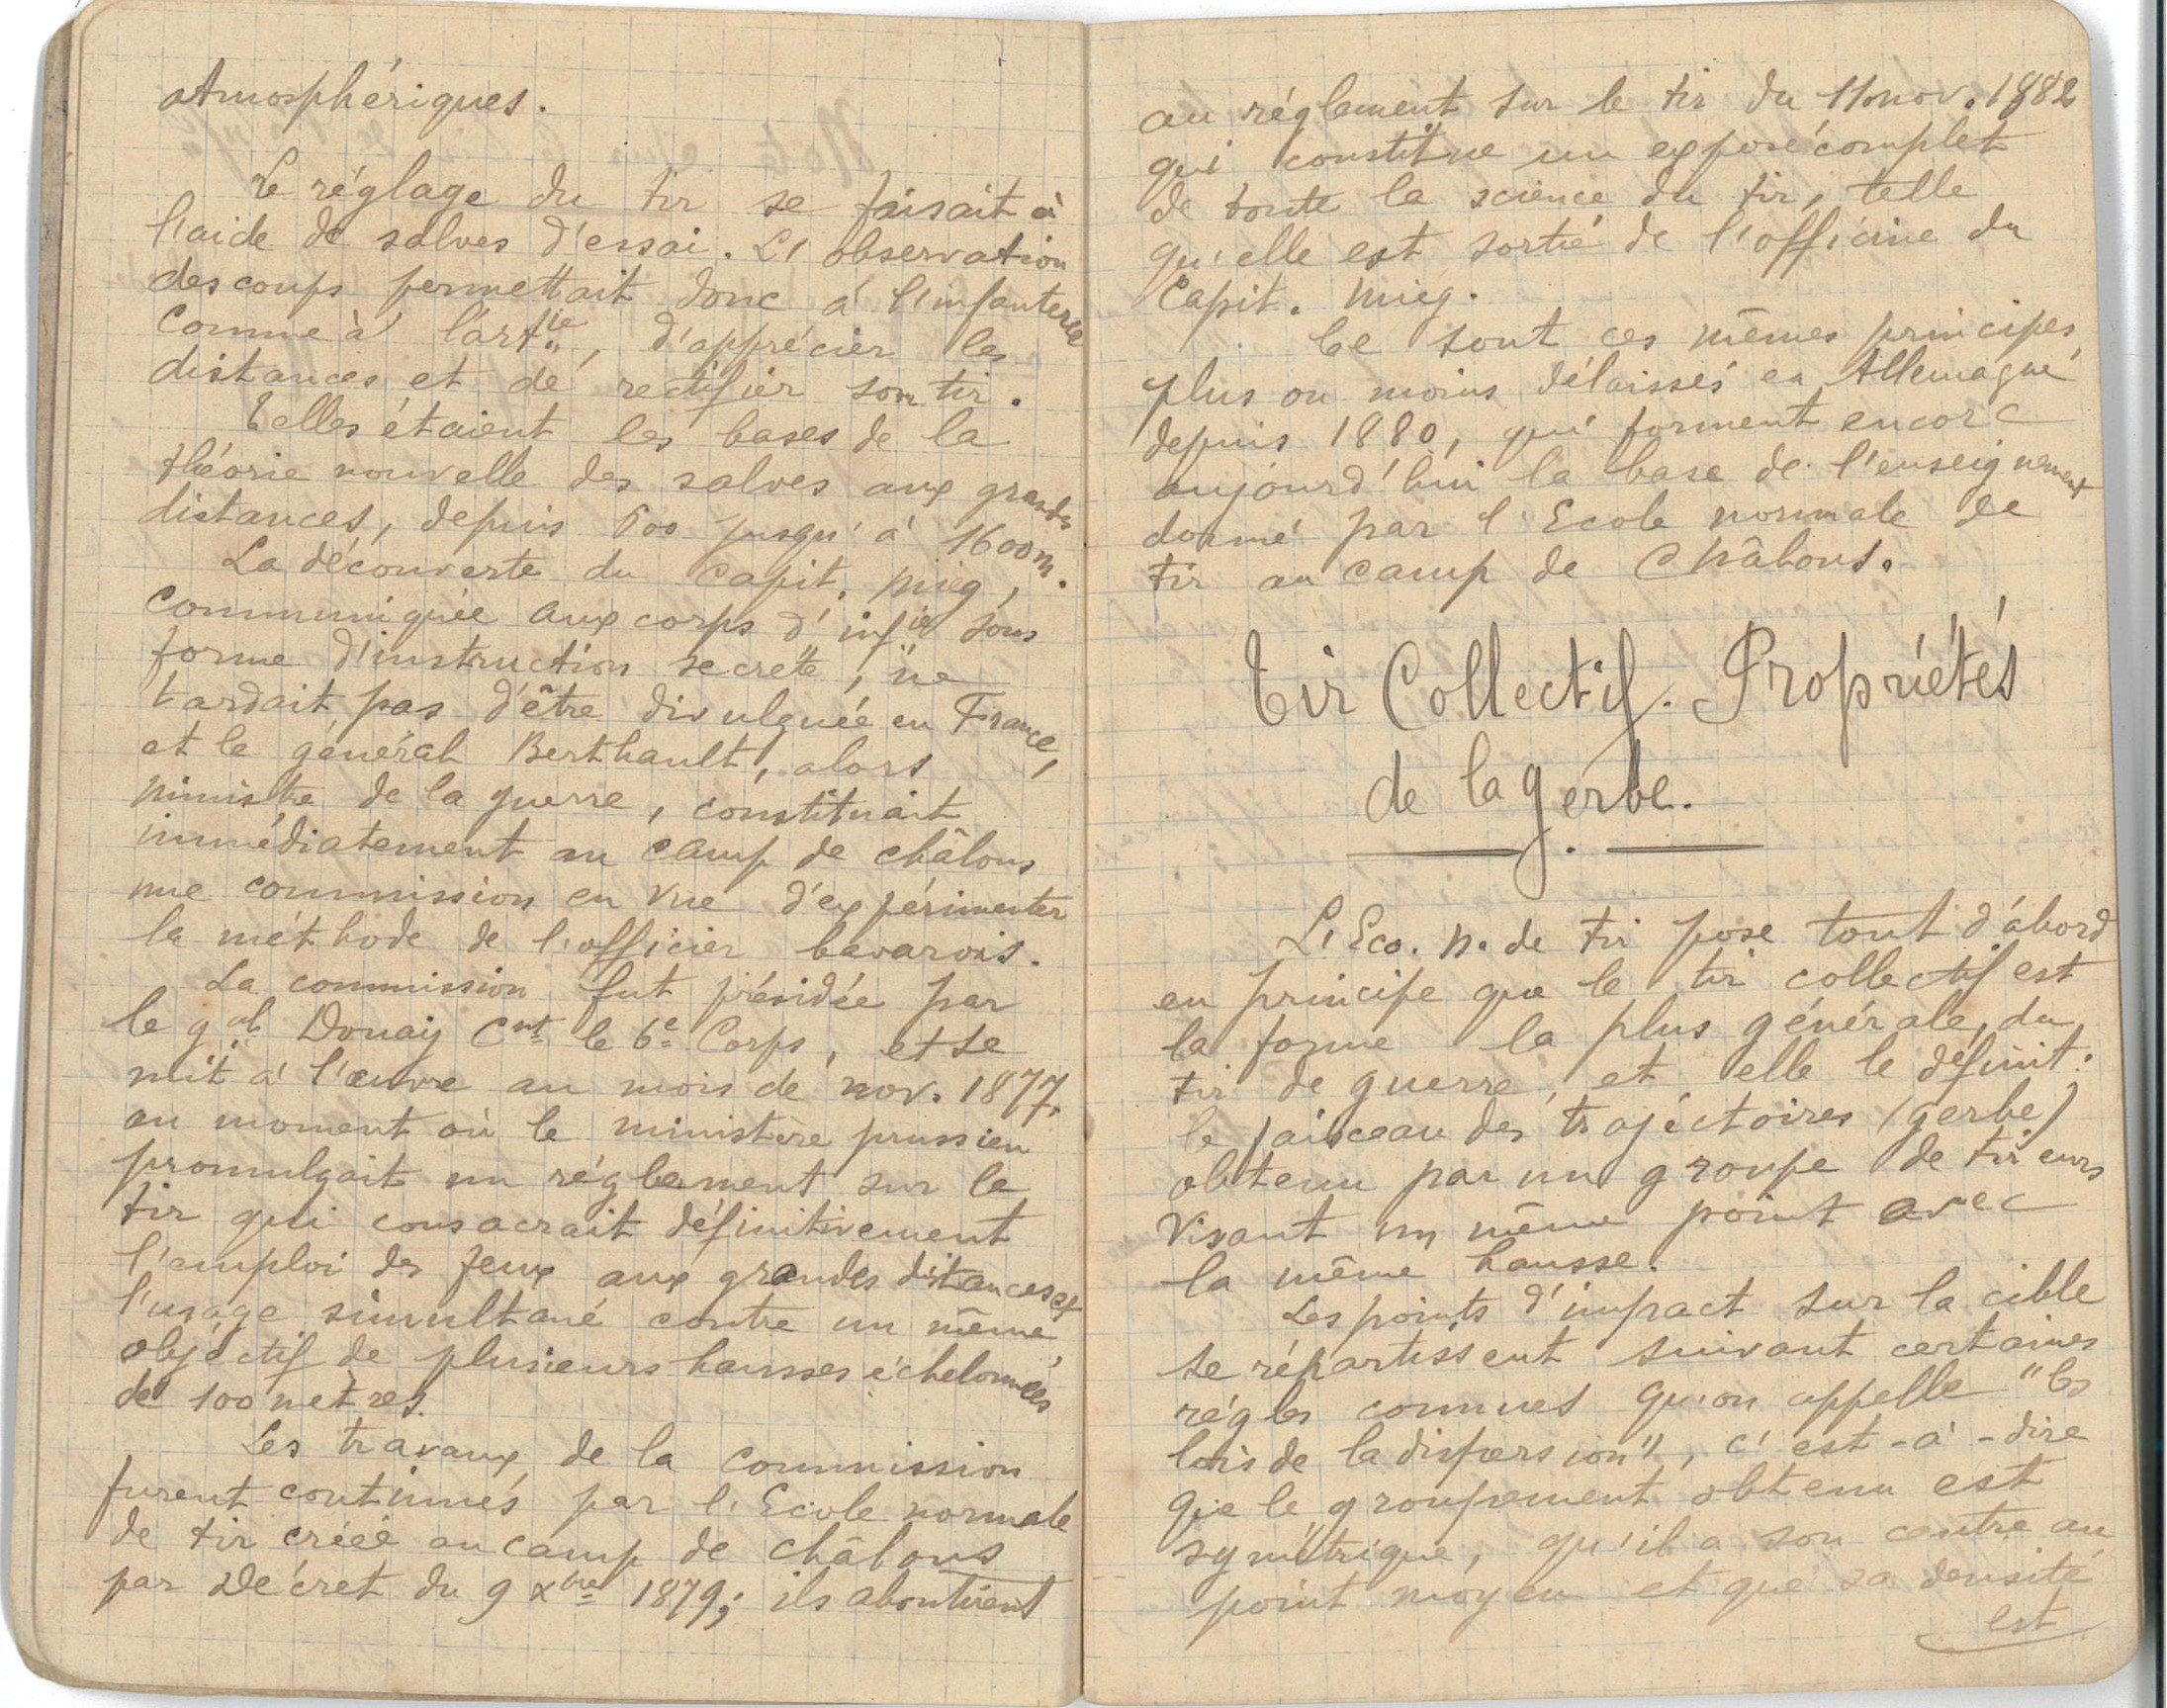 atmosphériques.
Le réglage du tir se faisait à
l'aide de salves d'essai. L'observation
des coups permettait donc à l'infanterie
comme à l'artie, d'apprécier les
distances et de rectifier son tir.
Telles étaient les bases de la
théorie nouvelle des salves aux grandes
distances, depuis 600 jusqu'à 1600m.
La découverte du Capit. Mieg,
communiquée aux corps d'infie sous
forme d'instruction secrète, ne
tardait pas d'être divulguée en France,
et le général Berthault, alors
ministre de la guerre, constituait
immédiatement au camp de châlons
une commission en vue d'expérimenter
la méthode de l'officier bavarois.
La commission fut présidée par
le gal Douay Cnt le 6e Corps, et se
mit à l'œuvre au mois de nov. 1877,
au moment où le ministère prussien
promulgait un réglement sur le
tir qui consacrait définitivement
l'emploi des feux aux grandes distances et
l'usage simultané contre un même
objectif de plusieurs hausses échelonnées
de 100 metres.
Les travaux de la Commission
furent continués par l'Ecole normale
de tir créée au camp de châlons
par Décret du 9 xbre 1879; ils aboutirent
au réglement sur le tir du 11 nov. 1882
qui constitue un exposé complet
de toute la science du tir, telle
qu'elle est sortie de l'officine du
Capit. Mieg.
Ce sont ces mêmes principes,
plus ou moins délaissés en Allemagne
depuis 1880, qui forment encore
aujourd'hui la base de l'enseignement
donné par l'Ecole normale de
tir au camp de Châlons.
Tir Collectif. Propriétés
de la gerbe.
L'Eco. n. de tir pose tout d'abord
en principe que le tir collectif est
la forme la plus générale du
tir de guerre, et elle le définit:
le faisceau des trajectoires (gerbe)
obtenu par un groupe de tireurs
visant un même point avec
la même hausse.
Les points d'impact sur la cible
se répartissent suivant certaines
régles connues qu'on appelle "les
lois de la dispersion", c'est-à-dire
que le groupement obtenu est
symétrique, qu'il a son centre au
point moyen et que sa densité
est